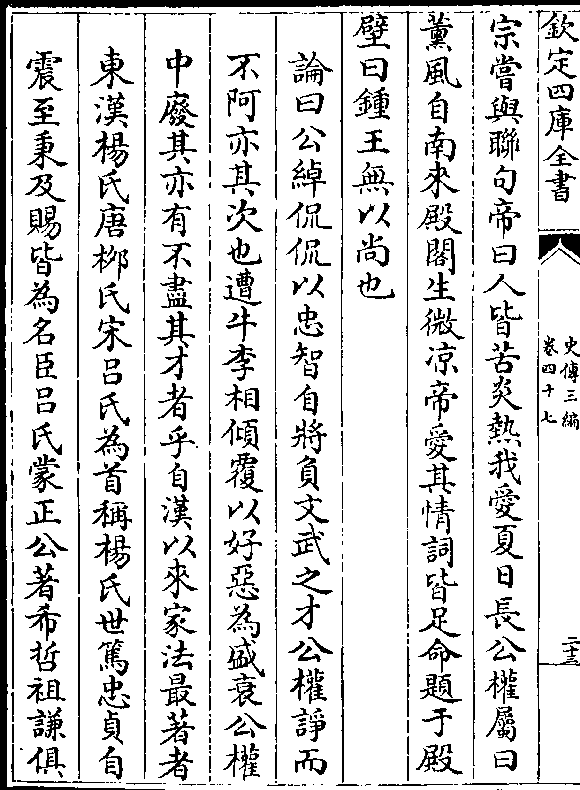 欽定四庫全書
史傳三編
卷四十七
二十三
宗嘗與聯句帝曰人皆苦炎熱我愛夏日長公權屬曰
薫風自南來殿閣生微凉帝愛其情詞皆足命題于殿
壁曰鍾王無以尚也
論曰公綽侃侃以忠智自將負文武之才公權諍而
不阿亦其次也遭牛李相傾覆以好惡為盛衰公權
中廢其亦有不盡其才者乎自漢以來家法最著者
東漢楊氏唐栁氏宋吕氏為首稱楊氏世篤忠貞自
震至秉及賜皆為名臣吕氏蒙正公著希哲祖謙俱